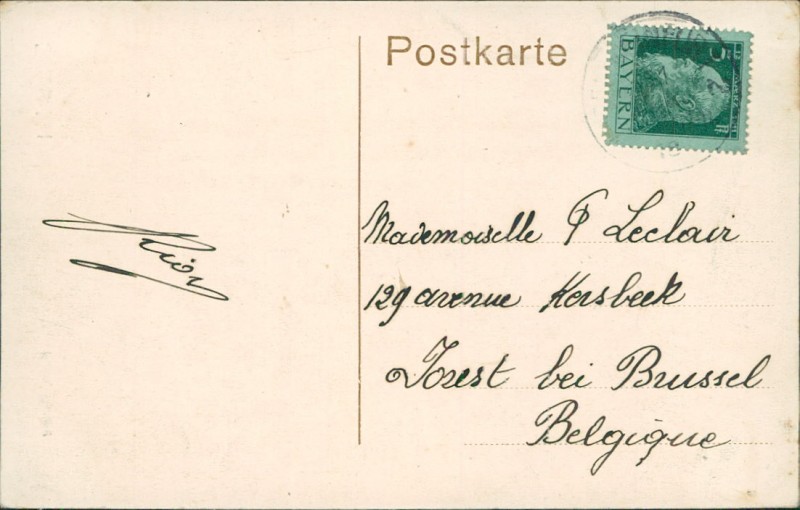 Postkarte
5
BAYERN
Mademoiselle P Leclair
129 avenue Kersbeek
Forest bei Brussel
Belgique